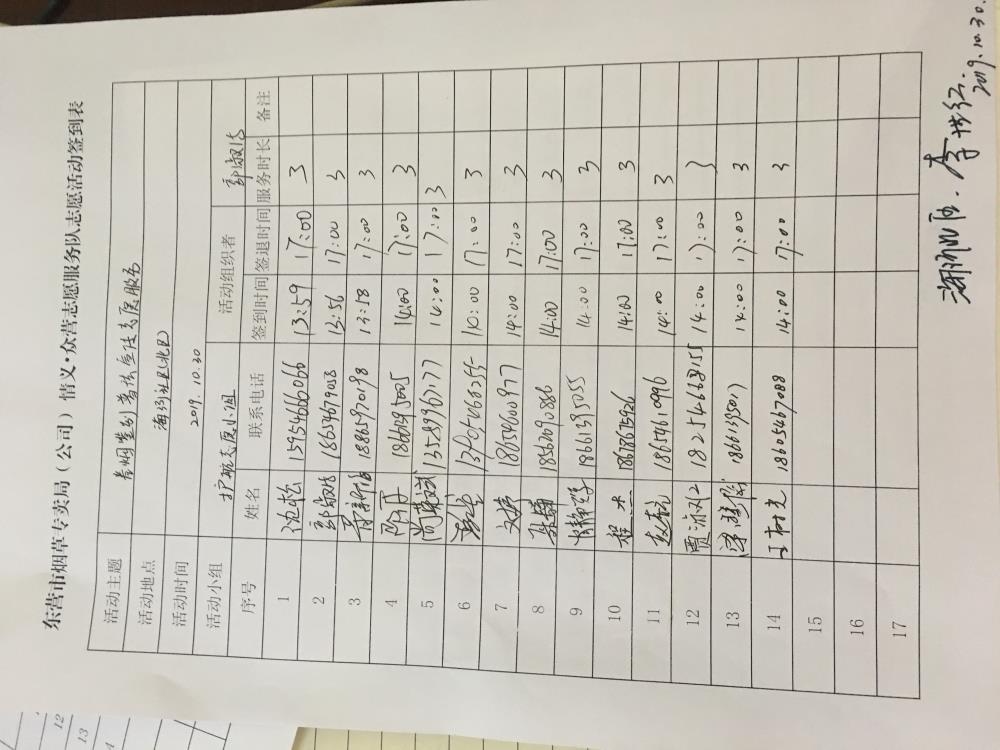 东营市烟草专卖局（公司）情义·众营志愿服务队志愿活动签到表
活动主题 卷烟鉴别普法宣传志愿服务
活动地点 海河社区(北区)
活动时间 2019.10.30
活动小组 护航志愿小组 活动组织者 郭淑洁
序号 姓名 联系电话 签到时间 签退时间 服务时长 备注
1 15954666066 13:59 17:00 3
2 郭淑洁 18654679058 13:56 17:00 3
3 18865970198 13:58 17:00 3
4 18661395005 14:00 17:00 3
5 尚英斌 13589960177 14:00 17:00 3
6 14:00 17:00 3
7 18654600977 14:00 17:00 3
8 18562090886 14:00 17:00 3
9 18661395055 14:00 17:00 3
10 程杰 18678675926 14:00 17:00 3
11 18654610996 14:00 17:00 3
12 18254668355 14:00 17:00 3
13 18661395017 14:00 17:00 3
14 丁树光 18605467088 14:00 17:00 3
15
16
17
李洪红.
2019.10.30.